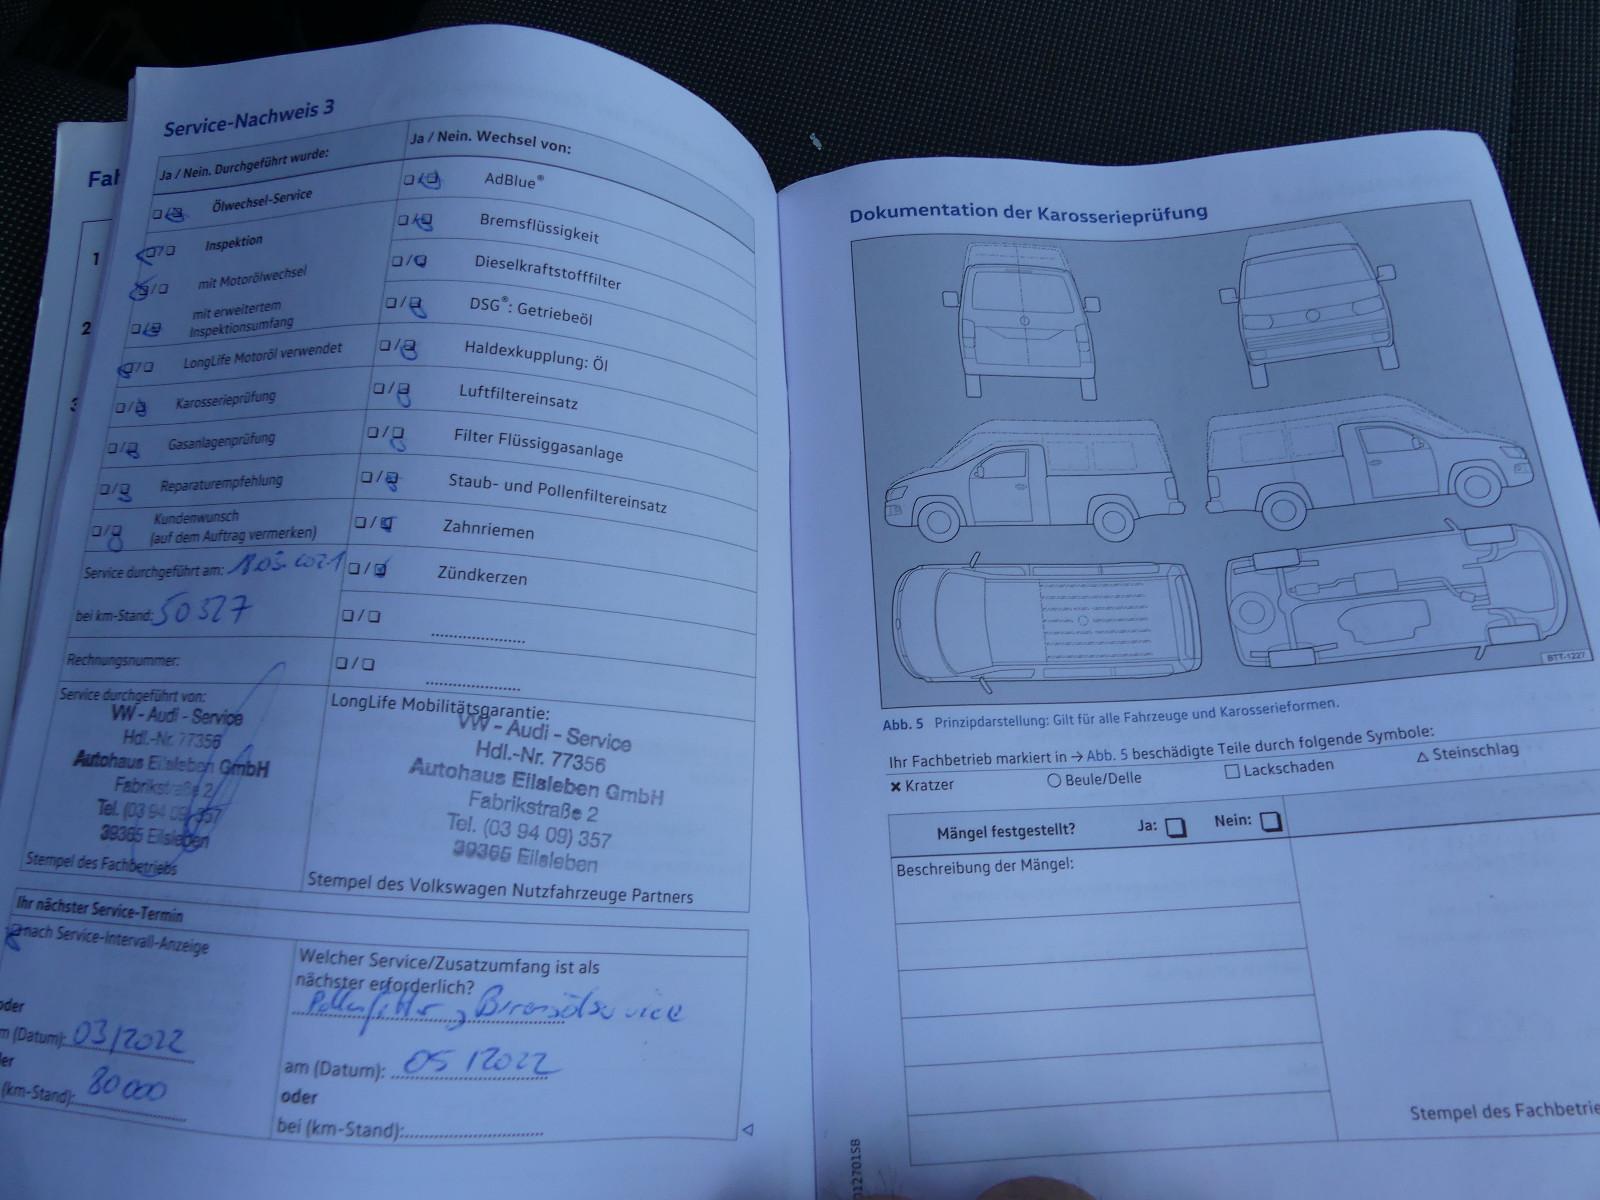 Service-Nachweis 3
Ja / Nein. Durchgeführt wurde:
Ölwechsel-Service
Inspektion
mit Motorölwechsel
mit erweitertem
Inspektionsumfang
LongLife Motoröl verwendet
Karosserieprüfung
Gasanlagenprüfung
Reparaturempfehlung
Kundenwunsch
(auf dem Auftrag vermerken)
Service durchgeführt am:
bei km-Stand: 50327
Rechnungsnummer:
Service durchgeführt von:
VW - Audi - Service
Hdl.-Nr. 77356
Autohaus Eilsleben GmbH
Fabrikstraße 2
Tel. (03 94 09) 357
39365 Eilsleben
Stempel des Fachbetriebs
Ja / Nein. Wechsel von:
AdBlue®
Bremsflüssigkeit
Dieselkraftstofffilter
DSG®: Getriebeöl
Haldexkupplung: Öl
Luftfiltereinsatz
Filter Flüssiggasanlage
Staub- und Pollenfiltereinsatz
Zahnriemen
Zündkerzen
LongLife Mobilitätsgarantie:
VW - Audi - Service
Hdl.-Nr. 77356
Autohaus Eilsleben GmbH
Fabrikstraße 2
Tel. (03 94 09) 357
39365 Eilsleben
Stempel des Volkswagen Nutzfahrzeuge Partners
Ihr nächster Service-Termin
nach Service-Intervall-Anzeige
oder
m (Datum): 03/2022
er
(km-Stand): 80000
Welcher Service/Zusatzumfang ist als
nächster erforderlich?
Pollenfilter,
am (Datum): 05/2022
oder
bei (km-Stand):
Fah
1
2
3
Dokumentation der Karosserieprüfung
BTT-1227
Abb. 5 Prinzipdarstellung: Gilt für alle Fahrzeuge und Karosserieformen.
Ihr Fachbetrieb markiert in → Abb. 5 beschädigte Teile durch folgende Symbole:
✖ Kratzer ○ Beule/Delle □ Lackschaden △ Steinschlag
Mängel festgestellt? Ja: ❏ Nein: ❏
Beschreibung der Mängel:
Stempel des Fachbetrie
012701SB